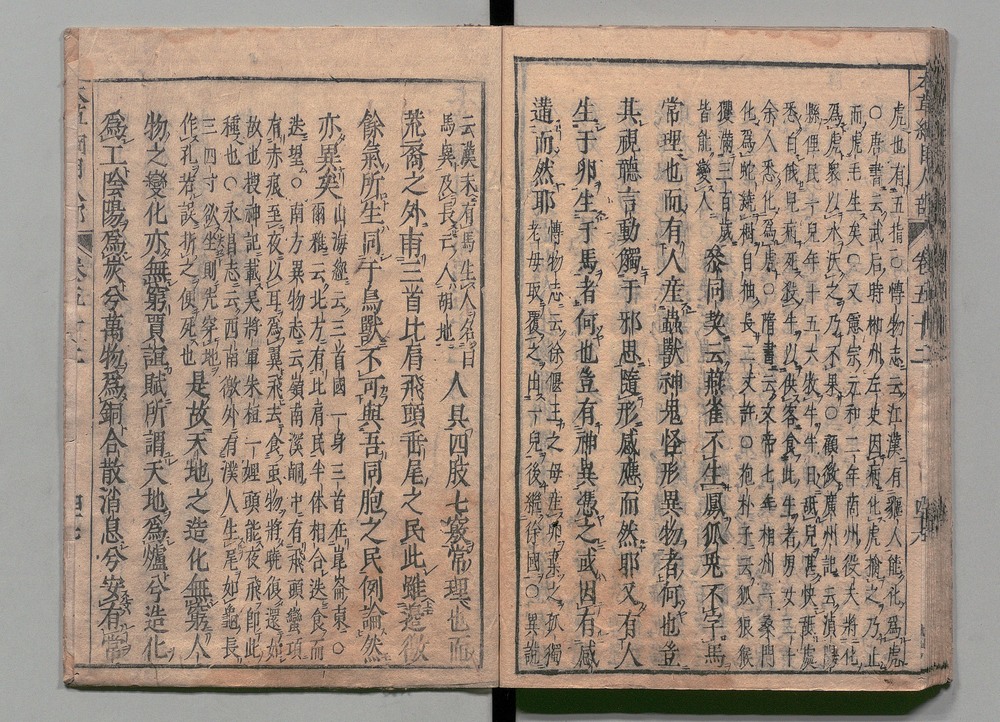 本草綱目人部 卷五十二
虎也有五指○博物志云江漢有貙人能化為虎
○唐書云武后時郴州左史因病化虎擒之乃止
而虎毛生矣○又憲宗元和二年商州役夫將化
為虎衆以水沃之乃不果○顧微廣州記云湞陽
縣俚民一兒年十五六牧牛牛日䑛兒甚快䑛處
悉白俄兒病死殺牛以供客食此牛者男女二十
余人悉化為虎○隋書云文帝七年相州一桑門
化為蛇繞樹自抽長二丈許○抱朴子云狐狼猴
玃滿三百歲
皆能變人
參同契云燕雀不生鳳狐兔不字馬
常理也而有人產蟲獸神鬼怪形異物者何也豈
其視聽言動觸于邪思隨形感應而然耶又有人
生于卵生于馬者何也豈有神異憑之或因有感
遘而然耶
博物志云徐偃王之母產卵棄之孤獨
老母取覆之出一兒後繼徐國○異說
云漢末有馬生人名曰
馬異及長云入胡地
人具四肢七竅常理也而
荒裔之外有三首比肩飛頭垂尾之民此雖邊徼
餘氣所生同于鳥獸不可與吾同胞之民例論然
亦異矣
山海經云三首國一身三首在崑崙東○
爾雅云北方有比肩民半体相合迭食而
迭望○南方異物志云嶺南溪峒中有飛頭蠻項
有赤痕至夜以耳為翼飛去食虫物將曉復還如
故也搜神記載吳將軍朱桓一婢頭能夜飛即此
種也○永昌志云西南徼外有濮人生尾如龜長
三四寸欲坐則先穿地
作孔若誤折之便死也
是故天地之造化無窮人
物之變化亦無窮賈誼賦所謂天地為爐兮造化
為工陰陽為炭兮萬物為銅合散消息兮安有常